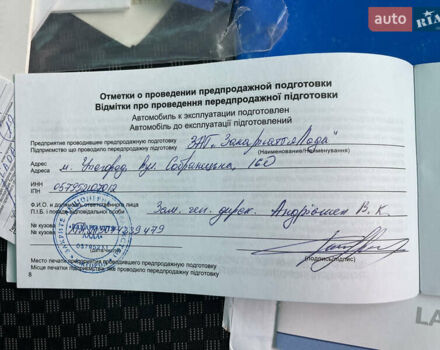 auto
RIA
Отметки о проведении предпродажной подготовки
Відмітки про проведення передпродажної підготовки
Автомобиль к эксплуатации подготовлен
Автомобіль до експлуатації підготовлений
Предприятие проводившее предпродажную подготовку ЗАТ "Закарпаття-Лада"
Підприємство що проводило передпродажну підготовку (Наименование/Найменування)
Адрес
Адреса м. Ужгород Вул. Собранецька, 160
ИНН
ІПН
Ф.И.О. и должность ответственного лица
П.І.Б. і посада відповідальної особи Зам. ген. дирек. Андріошек В. К.
№ кузова
№ кузова
(подпись/підпис)
Место печати предприятия проводившего предпродажную подготовку
Місце печатки підприємства, яке проводило передпродажну підготовку
8
LA